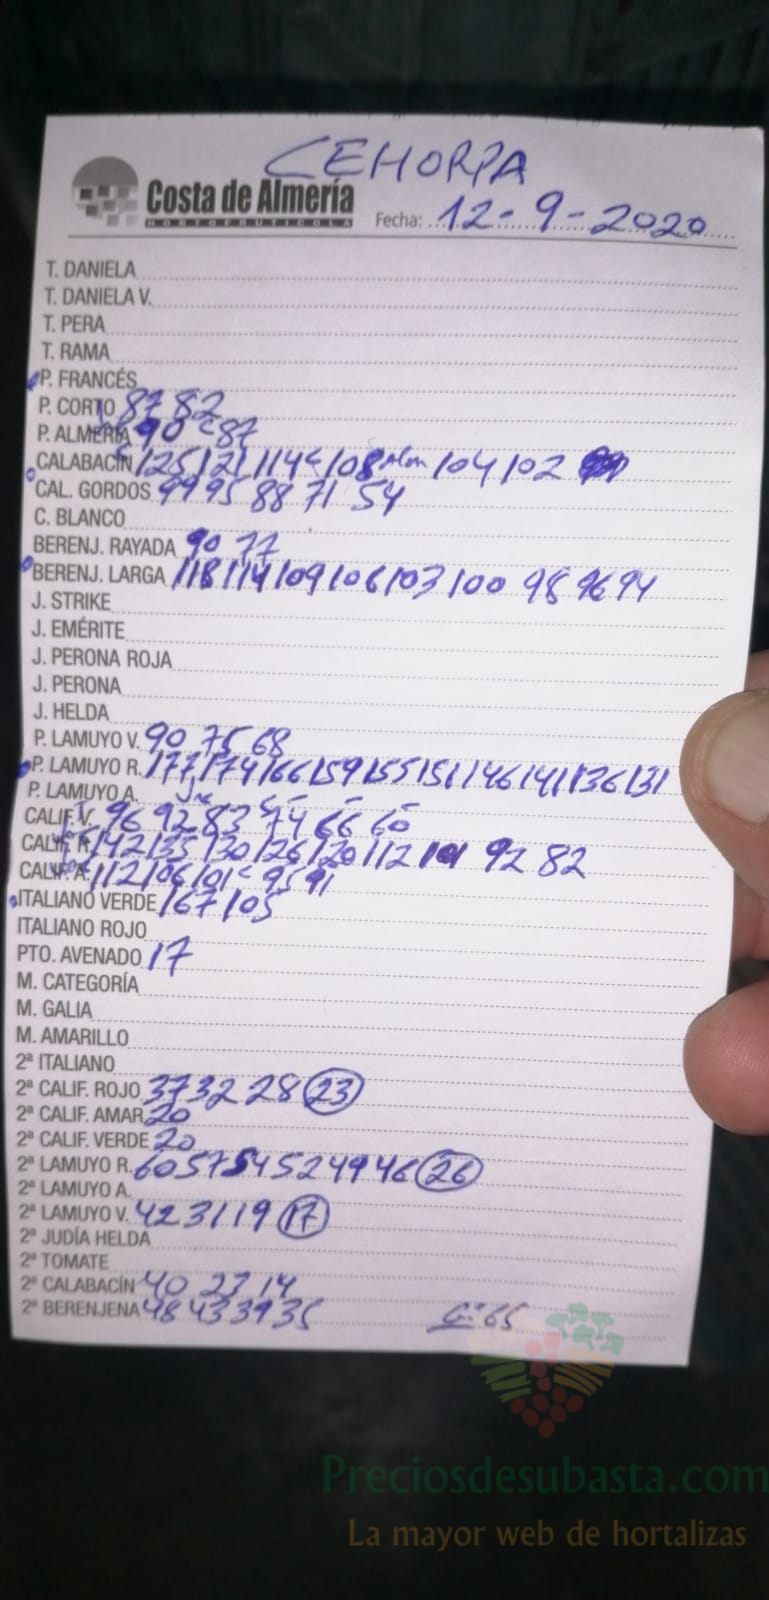 CEHORPA
Costa de Almería
HORTOFRUTICOLA
Fecha: 12-9-2020
T. DANIELA
T. DANIELA V.
T. PERA
T. RAMA
P. FRANCÉS
P. CORTO 87 82
P. ALMERÍA 90 87
CALABACÍN 125 121 114 108 104 102
CAL. GORDOS 99 95 88 71 54
C. BLANCO
BERENJ. RAYADA 90 77
BERENJ. LARGA 118 114 109 106 103 100 98 96 94
J. STRIKE
J. EMÉRITE
J. PERONA ROJA
J. PERONA
J. HELDA
P. LAMUYO V. 90 75 68
P. LAMUYO R. 177 174 166 159 155 151 146 141 136 131
P. LAMUYO A.
CALIF. V. 96 92 83 74 66 60
CALIF. R. 142 135 130 126 120 112 101 92 82
CALIF. A. 112 106 101 95 91
ITALIANO VERDE 167 105
ITALIANO ROJO
PTO. AVENADO 17
M. CATEGORÍA
M. GALIA
M. AMARILLO
2ª ITALIANO
2ª CALIF. ROJO 37 32 28 23
2ª CALIF. AMAR. 20
2ª CALIF. VERDE 20
2ª LAMUYO R. 60 57 54 52 49 46 26
2ª LAMUYO A.
2ª LAMUYO V. 42 31 19 17
2ª JUDÍA HELDA
2ª TOMATE
2ª CALABACÍN 40 27 14
2ª BERENJENA 48 43 39 35 65
Preciosdesubasta.com
La mayor web de hortalizas